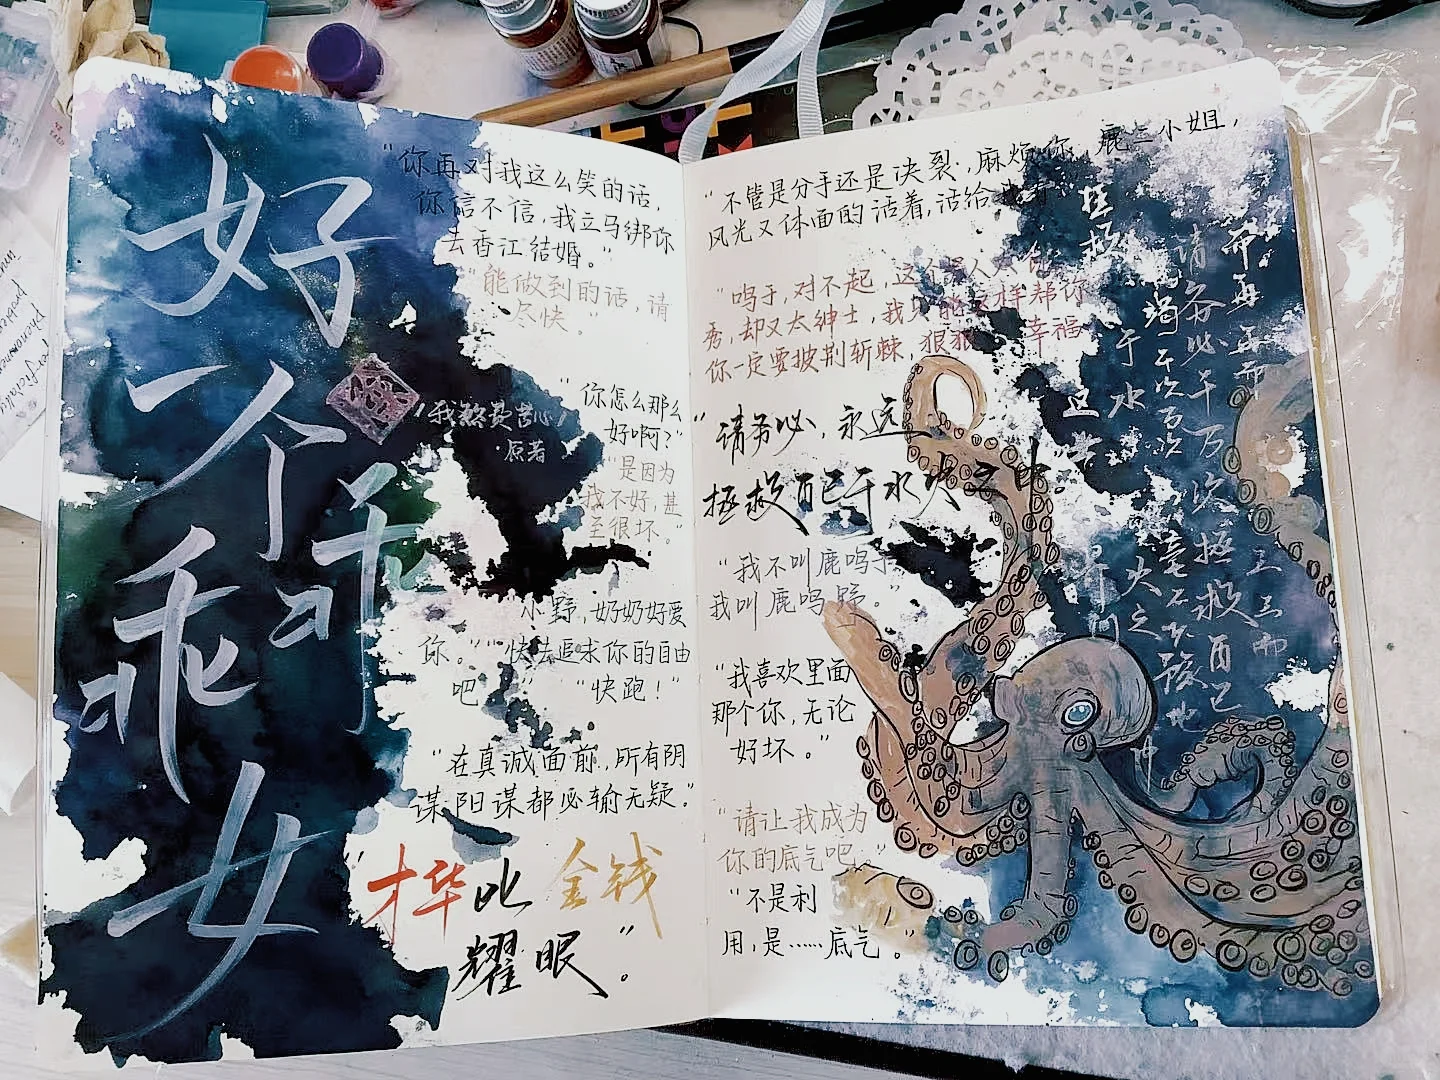 好个乖乖女
"你再对我这么笑的话，
你信不信，我立马绑你
去香江结婚。"
"能做到的话，请
尽快。"
我煞费苦心
原著
"你怎么那么
好啊？"
"是因为
我不好，甚
至很坏。"
"小野，奶奶好爱
你。""快去追求你的自由
吧""快跑！"
"在真诚面前，所有阴
谋阳谋都必输无疑。"
"才华比金钱
耀眼"。
"不管是分手还是决裂，麻烦你，鹿三小姐，
风光又体面的活着，活给我看
"鸣于，对不起，这个男人太
秀，却又太绅士，我只能这样帮你
你一定要披荆斩棘，狠狠 幸福
"请务必，永远
拯救自己于水火之中。
"我不叫鹿鸣于
我叫鹿鸣野。"
"我喜欢里面
那个你，无论
好坏。"
"请让我成为
你的底气吧。"
"不是利
用，是……底气。"
拯救
于水
火之
请务必千万次拯救自己
千次万次毫不犹豫地
而再再而
三三而